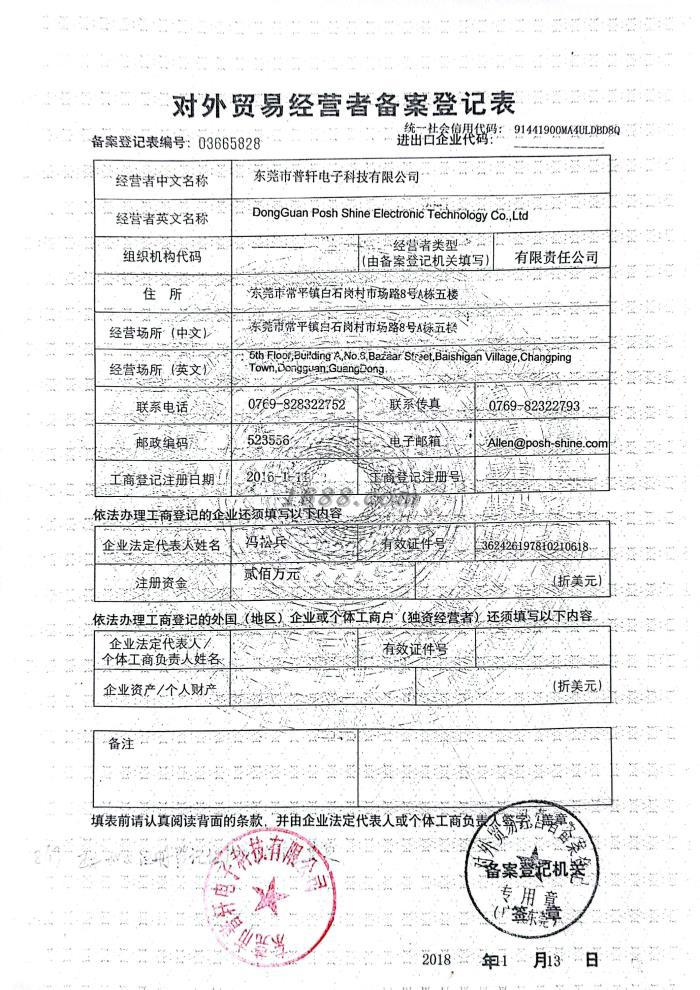 对外贸易经营者备案登记表
统一社会信用代码: 91441900MA4ULDBD8Q
备案登记表编号: 03665828 进出口企业代码:
经营者中文名称 东莞市普轩电子科技有限公司
经营者英文名称 DongGuan Posh Shine Electronic Technology Co.,Ltd
组织机构代码 经营者类型 (由备案登记机关填写) 有限责任公司
住 所 东莞市常平镇白石岗村市场路8号A栋五楼
经营场所 (中文) 东莞市常平镇白石岗村市场路8号A栋五楼
经营场所 (英文) 5th Floor,Building A,No.8,Bazaar Street,Baishigan Village,Changping
Town,Dongguan,GuangDong
联系电话 0769-828322752 联系传真 0769-82322793
邮政编码 523556 电子邮箱 Allen@posh-shine.com
工商登记注册日期 2016-1-11 工商登记注册号
1688.com
依法办理工商登记的企业还须填写以下内容
企业法定代表人姓名 冯松兵 有效证件号 362426197810210618
注册资金 贰佰万元 (折美元)
依法办理工商登记的外国 (地区) 企业或个体工商户 (独资经营者) 还须填写以下内容
企业法定代表人/
个体工商负责人姓名 有效证件号
企业资产/个人财产 (折美元)
备注
填表前请认真阅读背面的条款, 并由企业法定代表人或个体工商负责人签字、盖章。
东莞市普轩电子科技有限公司
对外贸易经营者备案登记
备案登记机关
专用章
签 章
(广东东莞)
2018 年11 月13 日